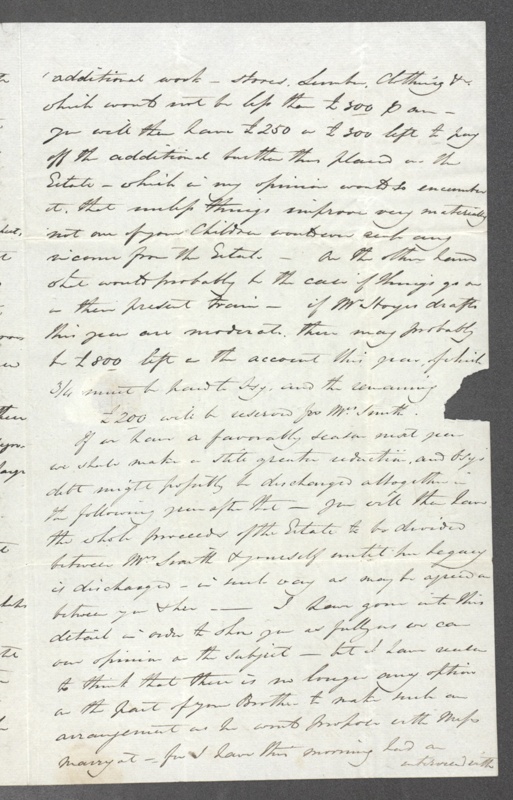 additional work – stores, Lumber, Clothing &c
which would not be less than £300 p an –
you will then have £250 or £300 left to pay
off the additional burthen thus placed on the
Estate – which in my opinion would so encumber
it, that unless things improve very materially
not one of your Children would ever reap any
income from the Estate – On the other hand
what would probably be the case if things go on
in their present train – if Mr Hoyes drafts
this year are moderate, there may probably
be £800 left in the account this year, of which
3/4 must be paid to and the remaining
£200 will be reserved for Mrs Smith.
If we have a favorable season next year
we shall make a still greater reduction, and
debt might possibly be discharged altogether in
the following year after that – you will then have
the whole proceeds of the Estate to be divided
between Mrs Smith & yourself until her Legacy
is discharged – in such way as may be agreed on
between you & her – — I have gone into this
detail in order to show you as fully as we can
our opinion on the subject – but I have reason
to think that there is no longer any option
on the part of your Brother to make such an
arrangement as he would propose with Messrs
Marryat – for I have this morning had an
interview with